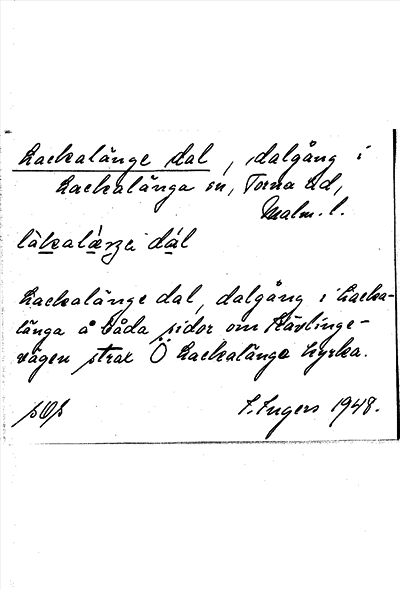 Lackalänge dal, dalgång i
Lackalänga sn, Torna hd,
Malm. l.
Lackalänge dal, dalgång i Lacka-
länga å båda sidor om Kävlinge-
vägen strax Ö Lackalänga kyrka.
I. Ingers 1948.